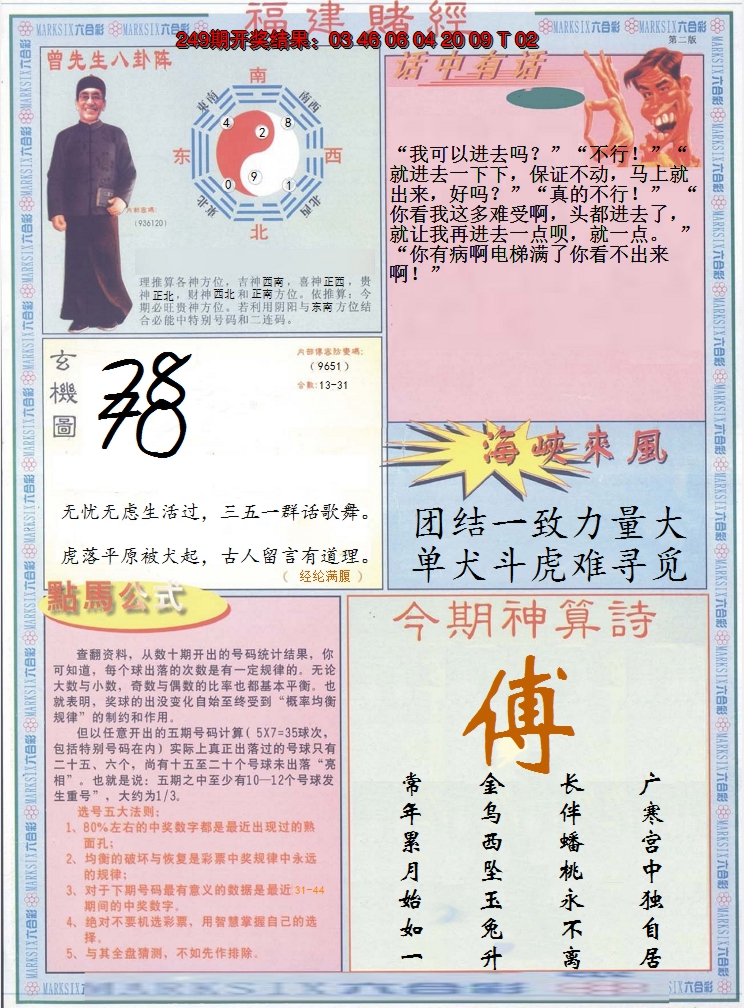 福建賭經
249期开奖结果：03 46 06 04 20 09 T 02
第二版
MARKSIX六合彩
曾先生八卦阵
南
東南
南西
4
8
2
东
西
9
0
1
東北
北西
北
内部密碼:
(936120)
理推算各神方位，吉神西南，喜神正西，贵
神正北，财神西北和正南方位。依推算：今
期必旺贵神方位。若利用阴阳与东南方位结
合必能中特别号码和二连码。
话中有话
“我可以进去吗？”“不行！”“
就进去一下下，保证不动，马上就
出来，好吗？”“真的不行！” “
你看我这多难受啊，头都进去了，
就让我再进去一点呗，就一点。 ”
“你有病啊电梯满了你看不出来
啊！”
玄機圖
内部傳密防密碼:
(9651)
合数:13-31
无忧无虑生活过，三五一群话歌舞。
虎落平原被犬起，古人留言有道理。
（ 经纶满腹 ）
海峽來風
团结一致力量大
单犬斗虎难寻觅
點馬公式
查翻资料，从数十期开出的号码统计结果，你
可知道，每个球出落的次数是有一定规律的。无论
大数与小数，奇数与偶数的比率也都基本平衡。也
就表明，奖球的出没变化自始至终受到“概率均衡
规律”的制约和作用。
但以任意开出的五期号码计算( 5X7=35球次，
包括特别号码在内) 实际上真正出落过的号球只有
二十五、六个，尚有十五至二十个号球未出落“亮
相”。也就是说：五期之中至少有10—12个号球发
生重号”，大约为1/3。
选号五大法则:
1、80%左右的中奖数字都是最近出现过的熟
面孔;
2、均衡的破坏与恢复是彩票中奖规律中永远
的规律;
3、对于下期号码最有意义的数据是最近31-44
期间的中奖数字。
4、绝对不要机选彩票，用智慧掌握自己的选
择。
5、与其全盘猜测，不如先作排除。
今期神算詩
傅
广寒宫中独自居
长伴蟠桃永不离
金乌西坠玉兔升
常年累月始如一